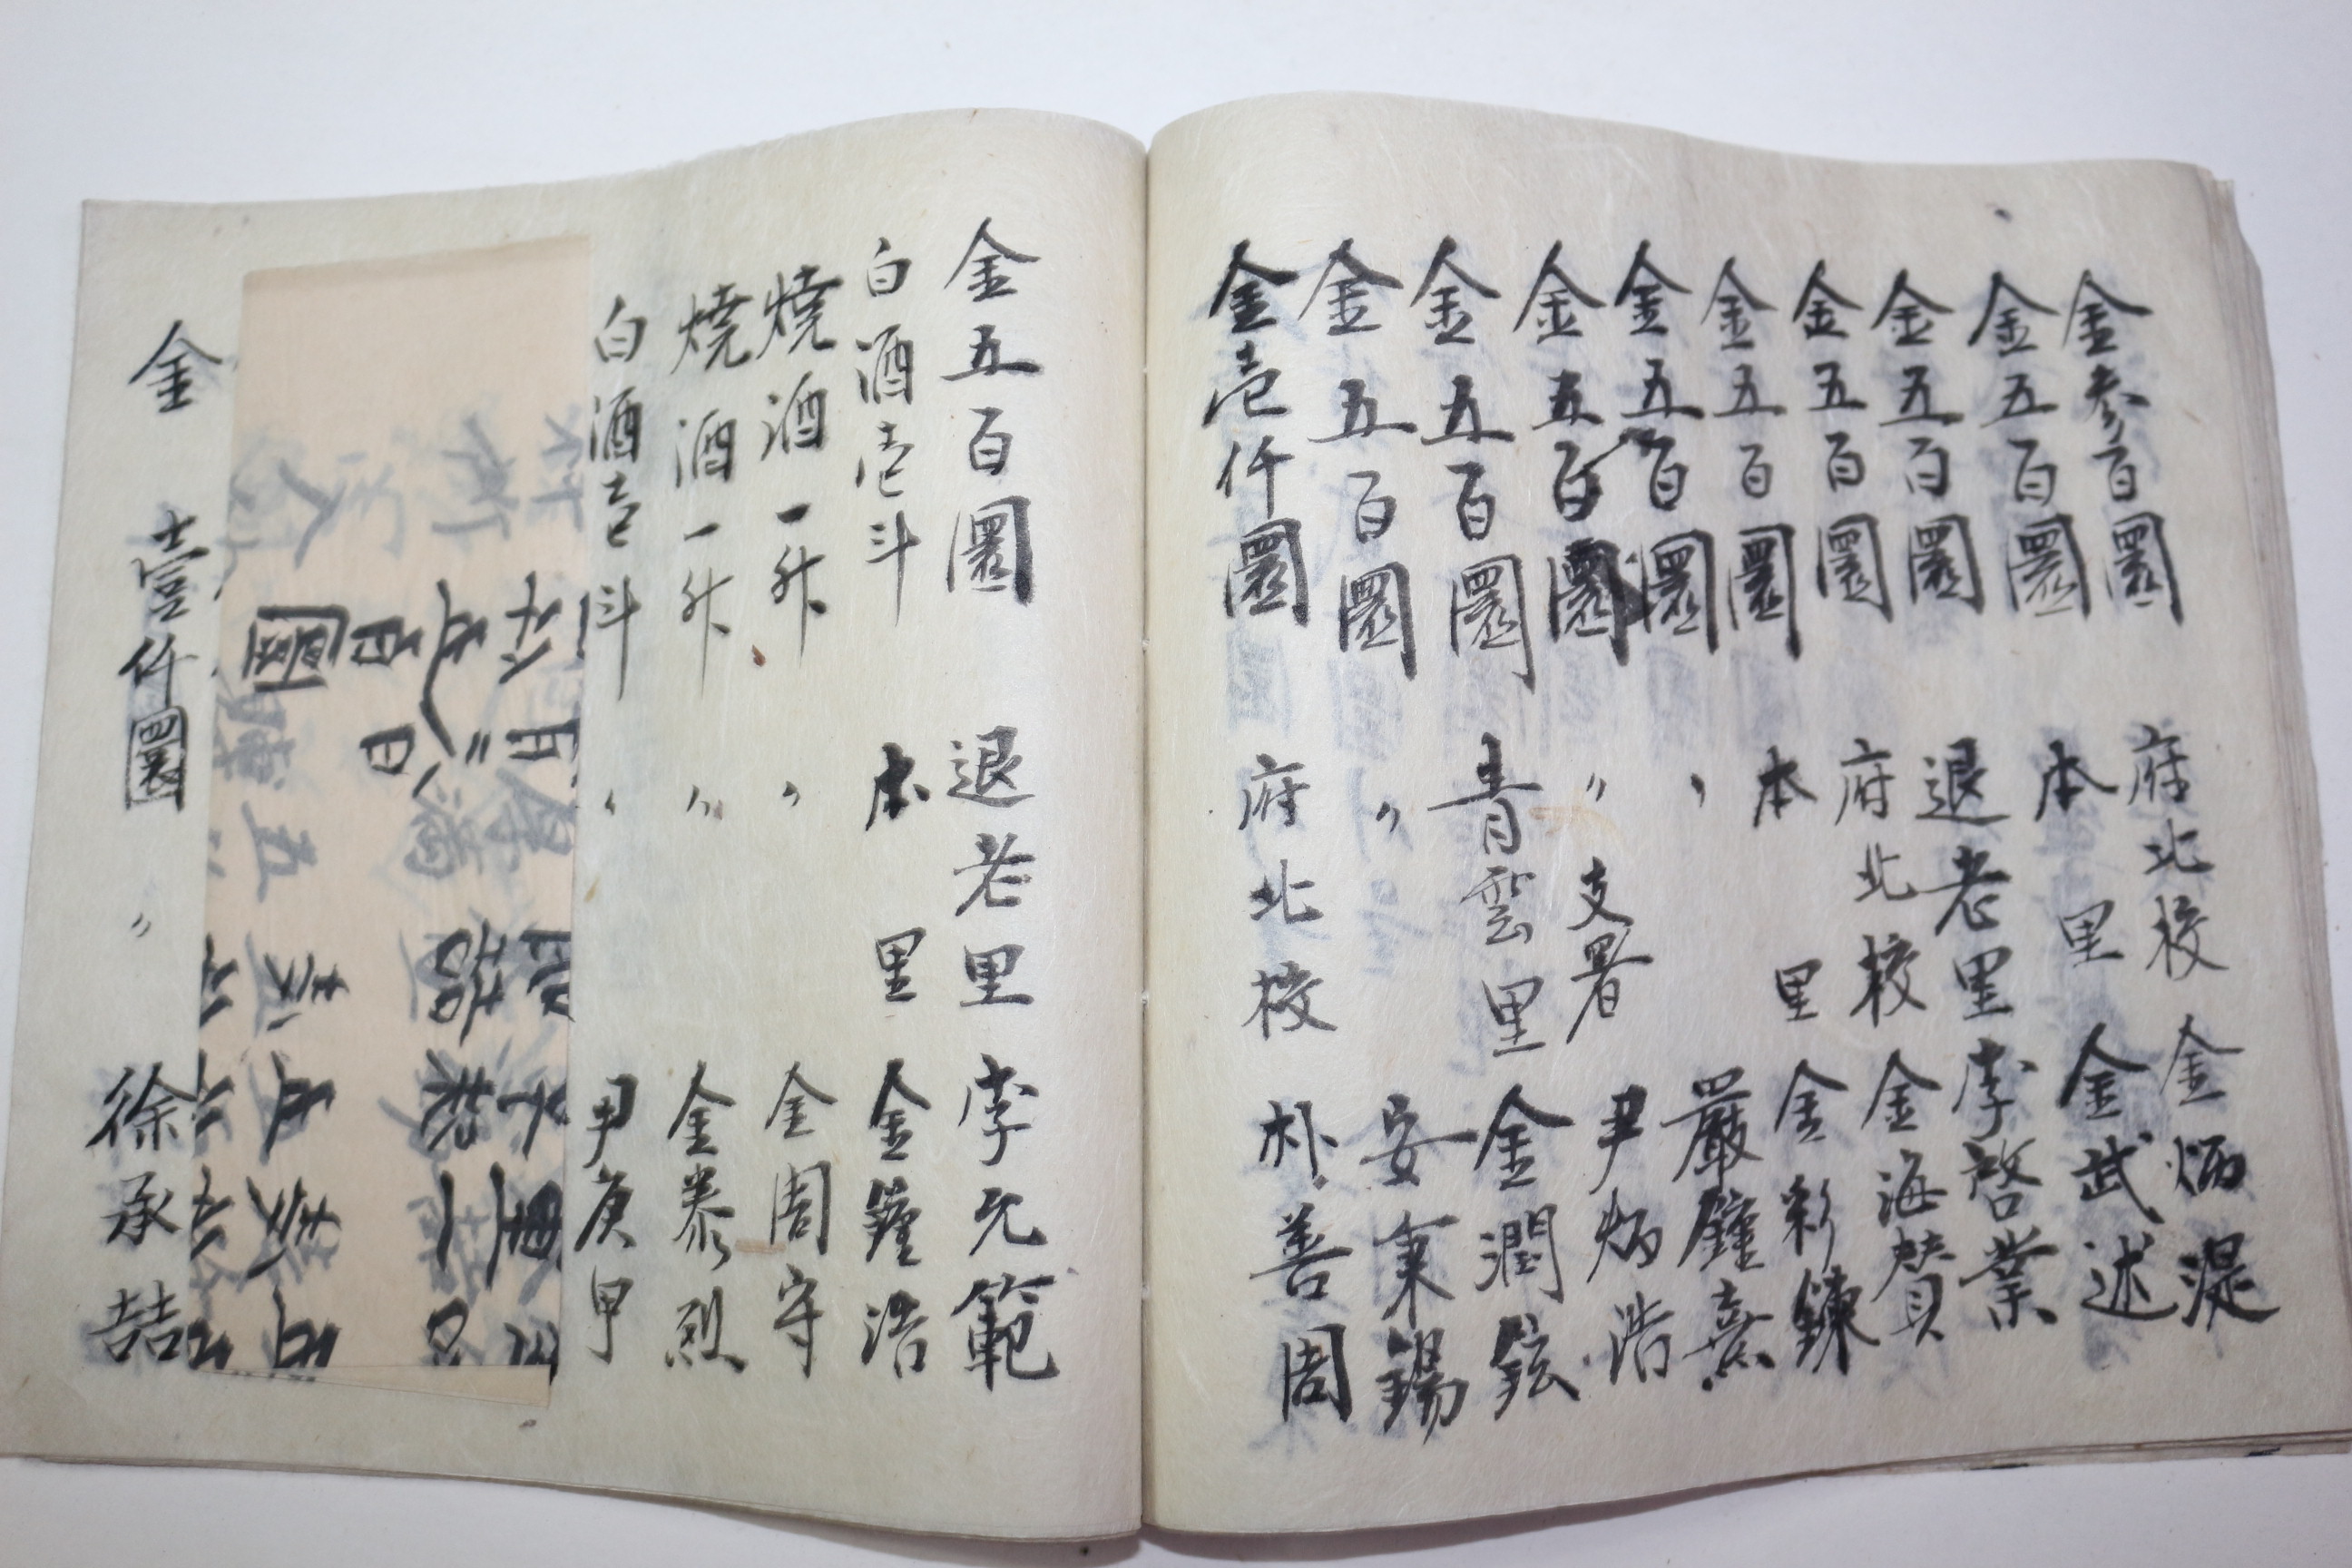 金参百圜 府北校 金炳湜
金五百圜 本里 金武述
金五百圜 退老里 李啓業
金五百圜 府北校 金海賛
金五百圜 本里 金彩鍊
金五百圜 〃 嚴鐘熹
金五百圜 〃 支署 尹炳浩
金五百圜 青雲里 金潤鉉
金五百圜 〃 安秉錫
金壱仟圜 府北校 朴善周
金五百圜 退老里 李元範
白酒壱斗 本里 金鐘浩
燒酒一升 〃 金周守
燒酒一升 〃 金泰烈
白酒壱斗 〃 尹庚甲
金壹仟圜 〃 徐承喆